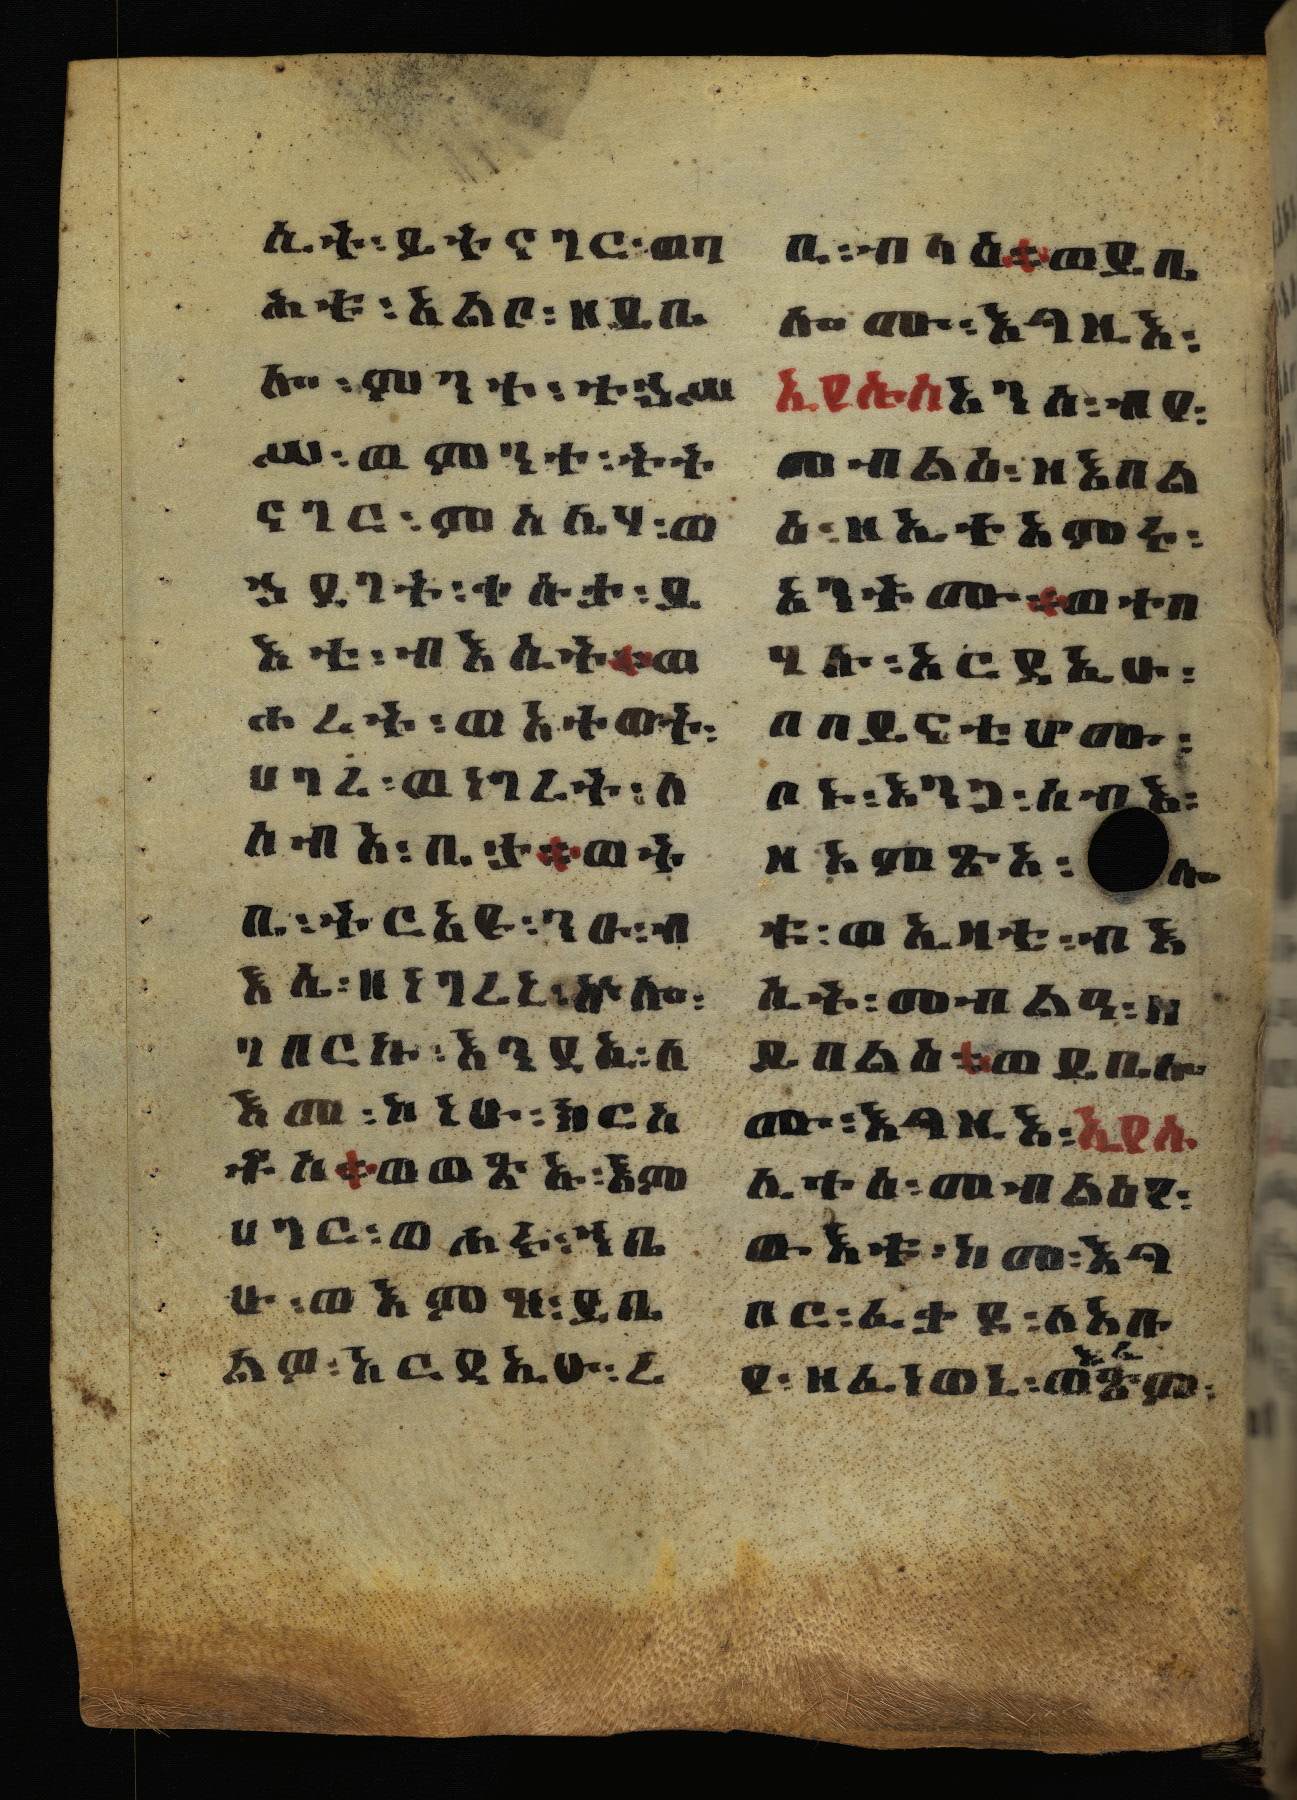 ሲት፡ይትናገር፡ወባ
ሕቱ፡አልቦ፡ዘይቤ
ሎ፡ምንተ፡ተኃሥ
ሥ፡ወምንተ፡ትት
ናገር፡ምስሌሃ፡ወ
ኃደገት፡ቀሱታ፡ይ
እቲ፡ብእሲት፨ወ
ሖረት፡ወአተወት፡
ሀገረ፡ወነገረት፡ለ
ሰብአ፡ቤታ፨ወት
ቤ፡ትርአዩ፡ንዑ፡ብ
እሴ፡ዘነገረኒ፡ኵሎ፡
ገበርኩ፡እንዳኢ፡ለ
እመ፡ከነሁ፡ክርስ
ቶስ፨ወወጽኡ፡እም
ሀገር፡ወሖሩ፡ኀቤ
ሁ፡ወእምዝ፡ይቤ
ልዎ፡አርዳኢሁ፡ረ
ቢ፡ብላዕ፨ወይቤ
ሎሙ፡እግዚእ፡
ኢየሱስአንሰ፡ብየ፡
መብልዕ፡ዘእበል
ዕ፡ዘኢተአምሩ፡
አንትሙ፨ወተበ
ሃሉ፡አርዳኢሁ፡
በበይናቲሆሙ፡
ቦኑ፡እንጋ፡ሰብእ፡
ዘአምጽአ፡ሎ
ቱ፡ወኢዘቲ፡ብእ
ሲት፡መብልዓ፡ዘ
ይበልዕ፨ወይቤሎ
ሙ፡እግዚእ፡ኢየሱ
ሊተሰ፡መብልዕየ፡
ውእቱ፡ከመ፡እግ
በር፡ፈቃደ፡ለአቡ
እፌ
የ፡ዘፈነወኒ፡ወጽም፡